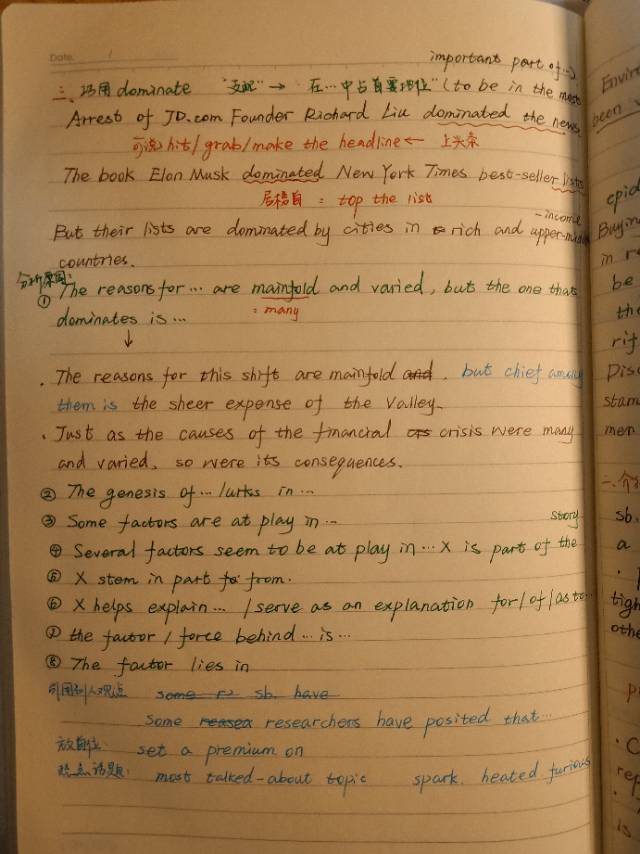 Date.
important part of …)
三、巧用 dominate "支配" → 在…中占首要地位" (to be in the most
Arrest of JD.com Founder Richard Liu dominated the news.
可说 hit/grab/make the headline ← 上头条
The book Elon Musk dominated New York Times best-seller lists
居榜首 = top the list
But their lists are dominated by cities in rich and upper-middle
-income
countries.
分析原因:
① The reasons for … are mainfold and varied, but the one that
dominates is … = many
↓
· The reasons for this shift are mainfold and, but chief among
them is the sheer expense of the Valley.
· Just as the causes of the financial crisis were many
and varied, so were its consequences.
② The genesis of … lurks in …
③ Some factors are at play in … story
④ Several factors seem to be at play in … X is part of the
⑤ X stem in part to from.
⑥ X helps explain … / serve as an explanation for/of/as to …
⑦ the factor / force behind … is …
⑧ The factor lies in
引用别人观点 some sb. have
some researchers have posited that …
放首位: set a premium on
热点话题: most talked-about topic spark. heated furious